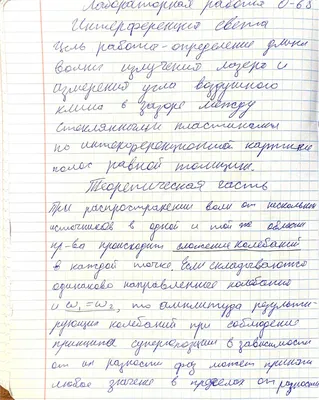 Лабораторная работа О-68
Интерференция света
Цель работы - определение длины
волны излучения лазера и
измерения угла воздушного
клина в зазоре между
стеклянными пластинами
по интерференционной картине
полос равной толщины.
Теоретическая часть
При распространении волн от нескольких
источников в одной и той же области
пр-ва происходит сложение колебаний
в каждой точке. Если складываются
одинаково направленные колебание
и ω₁=ω₂, то амплитуда результи-
рующих колебаний при соблюдение
принципа суперпозиции в зависимости
от их разности фаз может принять
любое значение в пределах от разности